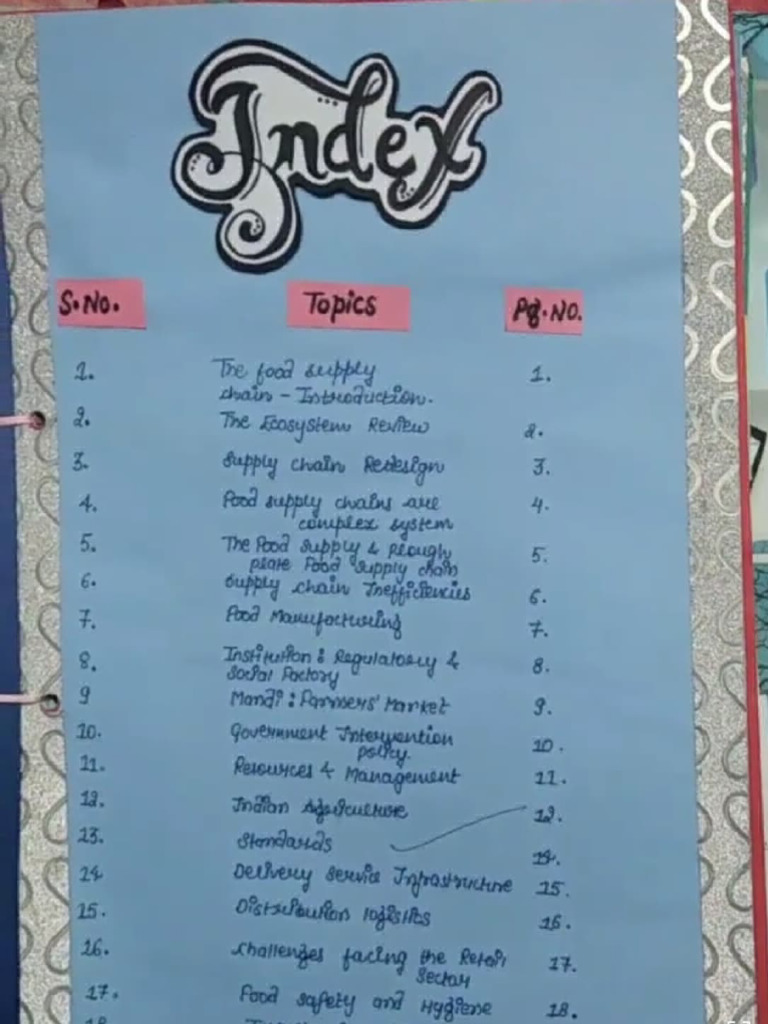 Index
S.No. Topics Pg.No.
1. The food supply 1.
chain - Introduction.
2. The Ecosystem Review 2.
3. Supply chain Redesign 3.
4. Food supply chains are 4.
complex system
5. The Food Supply & Plough 5.
plate Food supply chain
6. Supply chain Inefficiencies 6.
7. Food Manufacturing 7.
8. Institution : Regulatory & 8.
Social Factory
9 Mandi : Farmers' Market 9.
10. Government Intervention 10.
policy.
11. Resources & Management 11.
12. Indian Agriculture 12.
13. Standards 14.
14 Delivery Service Infrastructure 15.
15. Distribution logistics 16.
16. Challenges facing the Retail 17.
Sector
17. Food safety and Hygiene 18.
18.